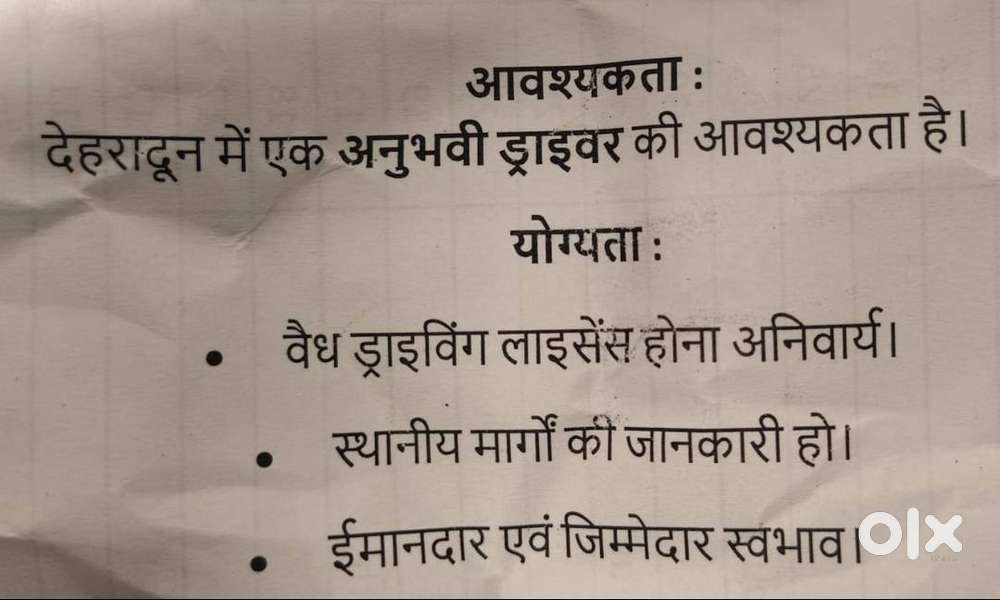 आवश्यकता :
देहरादून में एक अनुभवी ड्राइवर की आवश्यकता है।
योग्यता :
• वैध ड्राइविंग लाइसेंस होना अनिवार्य।
• स्थानीय मार्गों की जानकारी हो।
• ईमानदार एवं जिम्मेदार स्वभाव।
olx